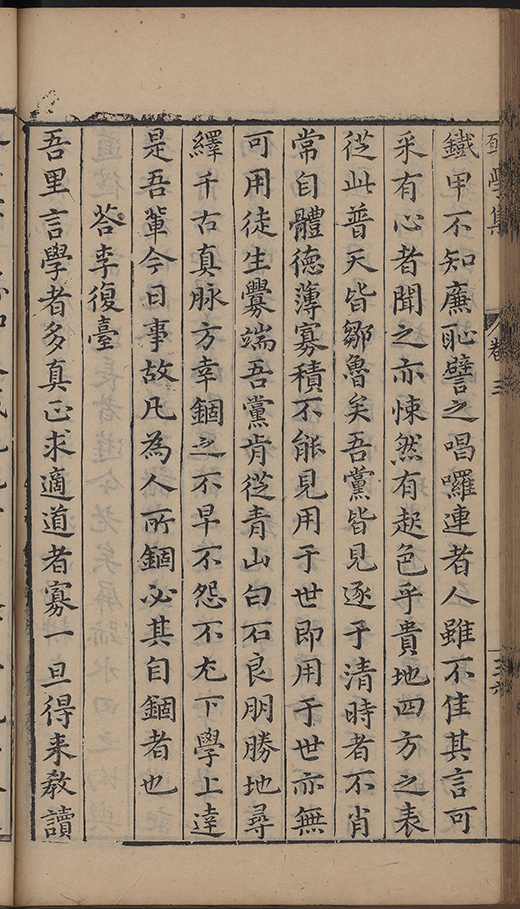 學集
卷三
鐵甲不知廉恥譬之唱囉連者人雖不佳其言可
采有心者聞之亦悚然有起色乎貴地四方之表
從此普天皆鄒魯矣吾黨皆見逐于清時者不肖
常自體德薄寡積不能見用于世即用于世亦無
可用徒生釁端吾黨肯從青山白石良朋勝地尋
繹千古真脉方幸錮之不早不怨不尤下學上達
是吾輩今日事故凡為人所錮必其自錮者也
荅李復臺
吾里言學者多真正求適道者寡一旦得来教讀